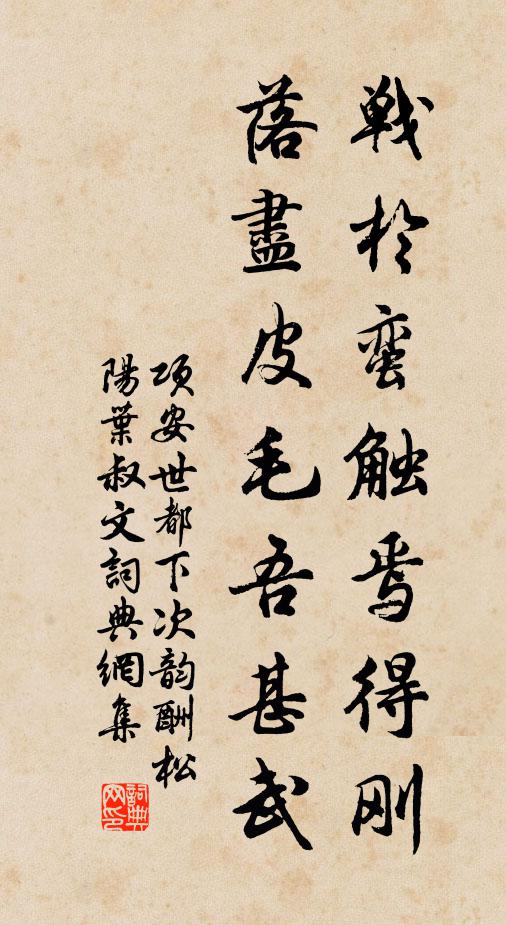 戦於蛮触焉得刚
落盡皮毛吾甚武
項安世都下次韵酬松
陽葉叔文詞典網集
詞典網印